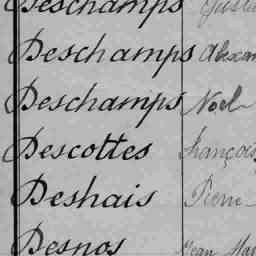 Deschamps
Deschamps Alexan
Deschamps Noël
Descottes François
Deshais Pierre
Desnos Jean Mar